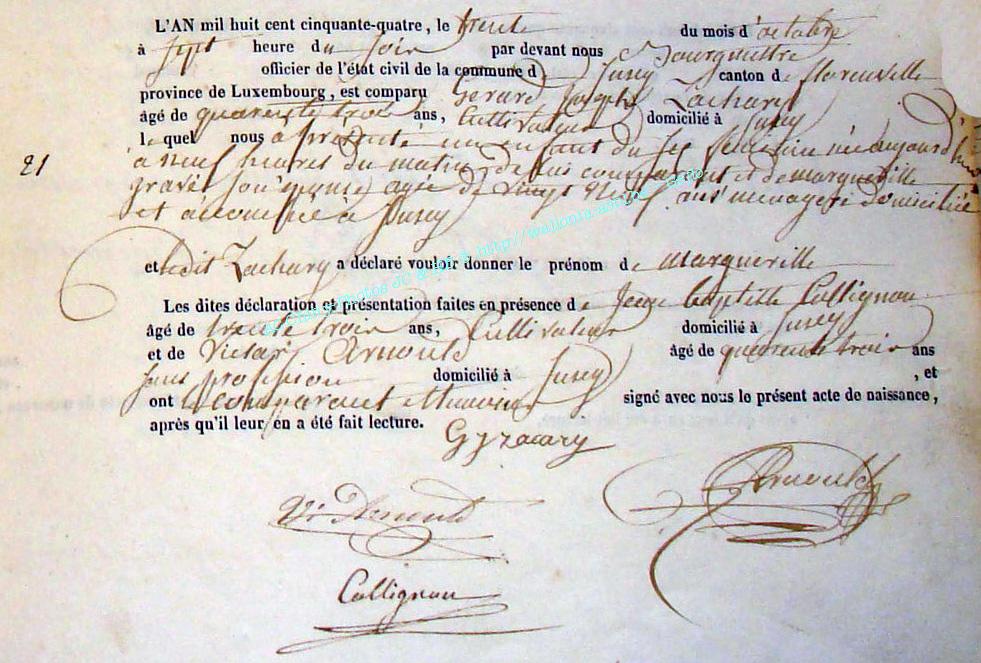 L'AN mil huit cent cinquante-quatre, le trente du mois d'octobre
à sept heure du soir par devant nous Bourgmestre
officier de l'état civil de la commune de Jusey canton de florenville
province de Luxembourg, est comparu Gerard Joseph Zachary
âgé de quarente trois ans, Cultivateur domicilié à Jusey
lequel nous a présenté un enfant du sex feminin né aujourd'hui
21
à neuf heures du matin de lui comparant et de margueritte
gravet son epouse agée de vingt neuf ans menagere domiciliée
et accouchée à Jusey
et ledit Zachary a déclaré vouloir donner le prénom de margueritte
Les dites déclaration et présentation faites en présence de Jean baptiste Collignon
âgé de trente trois ans, Cultivateur domicilié à Jusey
et de Victor Arnould âgé de quarente trois ans
sans profession domicilié à Jusey , et
ont le comparant et temoins signé avec nous le présent acte de naissance,
après qu'il leur en a été fait lecture.
G j zacary
Vr Arnould
Arnould
Collignon